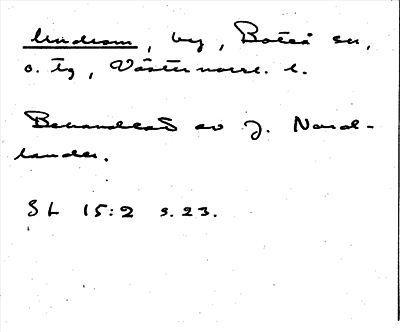 Undrom, by, Boteå sn,
o. tg, Västernorrl. l.
Behandlat av J. Nord-
lander.
SL 15:2 s. 23.